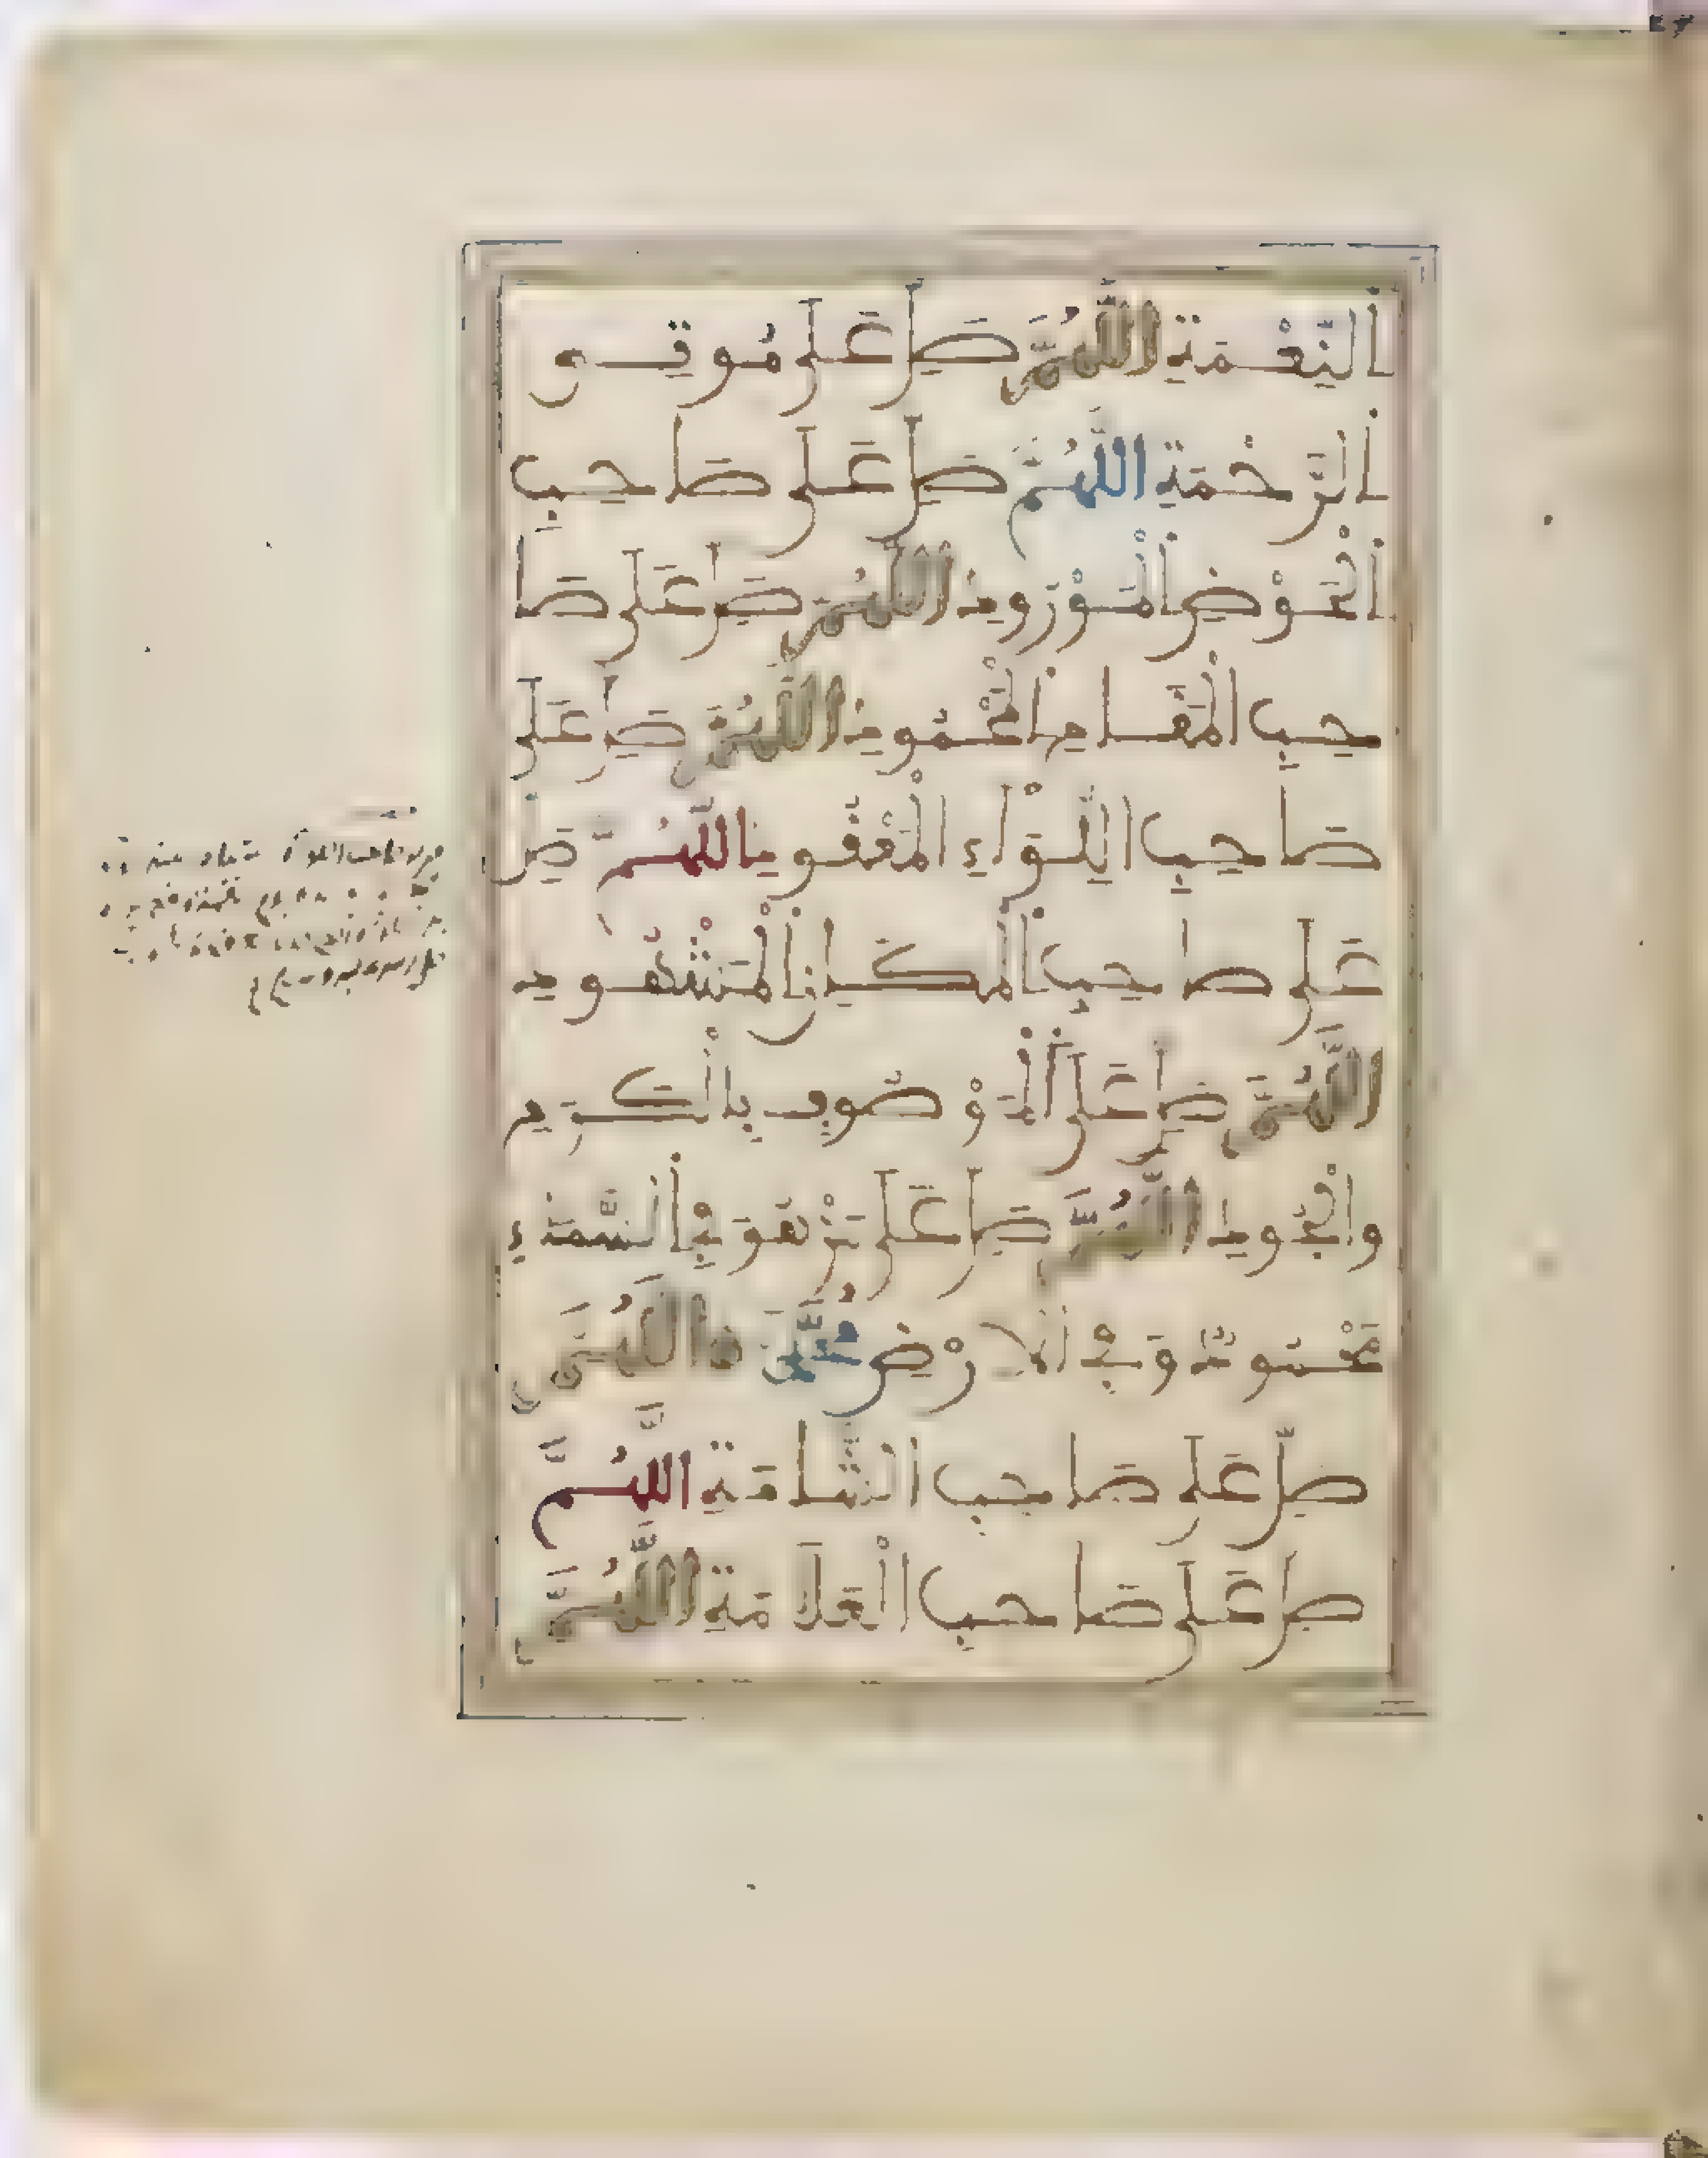 النِّعْمَةِ اللَّهُمَّ صَلِّ عَلَى مُوتِي
الرَّحْمَةِ اللَّهُمَّ صَلِّ عَلَى صَاحِبِ
الْحَوْضِ الْمَوْرُودِ اللَّهُمَّ صَلِّ عَلَى صَا
حِبِ الْمَقَامِ الْمَحْمُودِ اللَّهُمَّ صَلِّ عَلَى
صَاحِبِ اللِّوَاءِ الْمَعْقُودِ اللَّهُمَّ صَلِّ
عَلَى صَاحِبِ الْمَكَانِ الْمَشْهُودِ
اللَّهُمَّ صَلِّ عَلَى الْمَوْصُوفِ بِالْكَرَمِ
وَالْجُودِ اللَّهُمَّ صَلِّ عَلَى مَنْ هُوَ فِي السَّمَاءِ
مَحْمُودٌ وَفِي الْأَرْضِ مُحَمَّدٌ اللَّهُمَّ
صَلِّ عَلَى صَاحِبِ الشَّامَةِ اللَّهُمَّ
صَلِّ عَلَى صَاحِبِ الْعَلَامَةِ اللَّهُمَّ